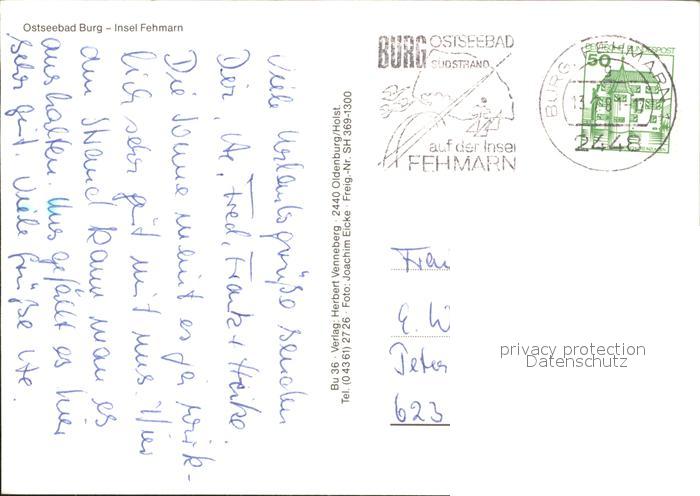 Ostseebad Burg – Insel Fehmarn
Viele Urlaubsgrüße senden
Dir, Ute, Fred, Frank + Heike.
Die Sonne meint es ja wirk-
lich sehr gut mit uns. Hier
am Strand kann man es
aushalten. Uns gefällt es hier
sehr gut. Viele Grüße Ute.
Bu 36 · Verlag: Herbert Venneberg · 2440 Oldenburg/Holst.
Tel. (0 43 61) 27 26 · Foto: Joachim Eicke · Freig.-Nr. SH 369-1300
BURG OSTSEEBAD
SÜDSTRAND
auf der Insel
FEHMARN
DEUTSCHE BUNDESPOST
50
BURG, FEHMARN 1
2448
Frau
E. W
Peter
623
privacy protection
Datenschutz